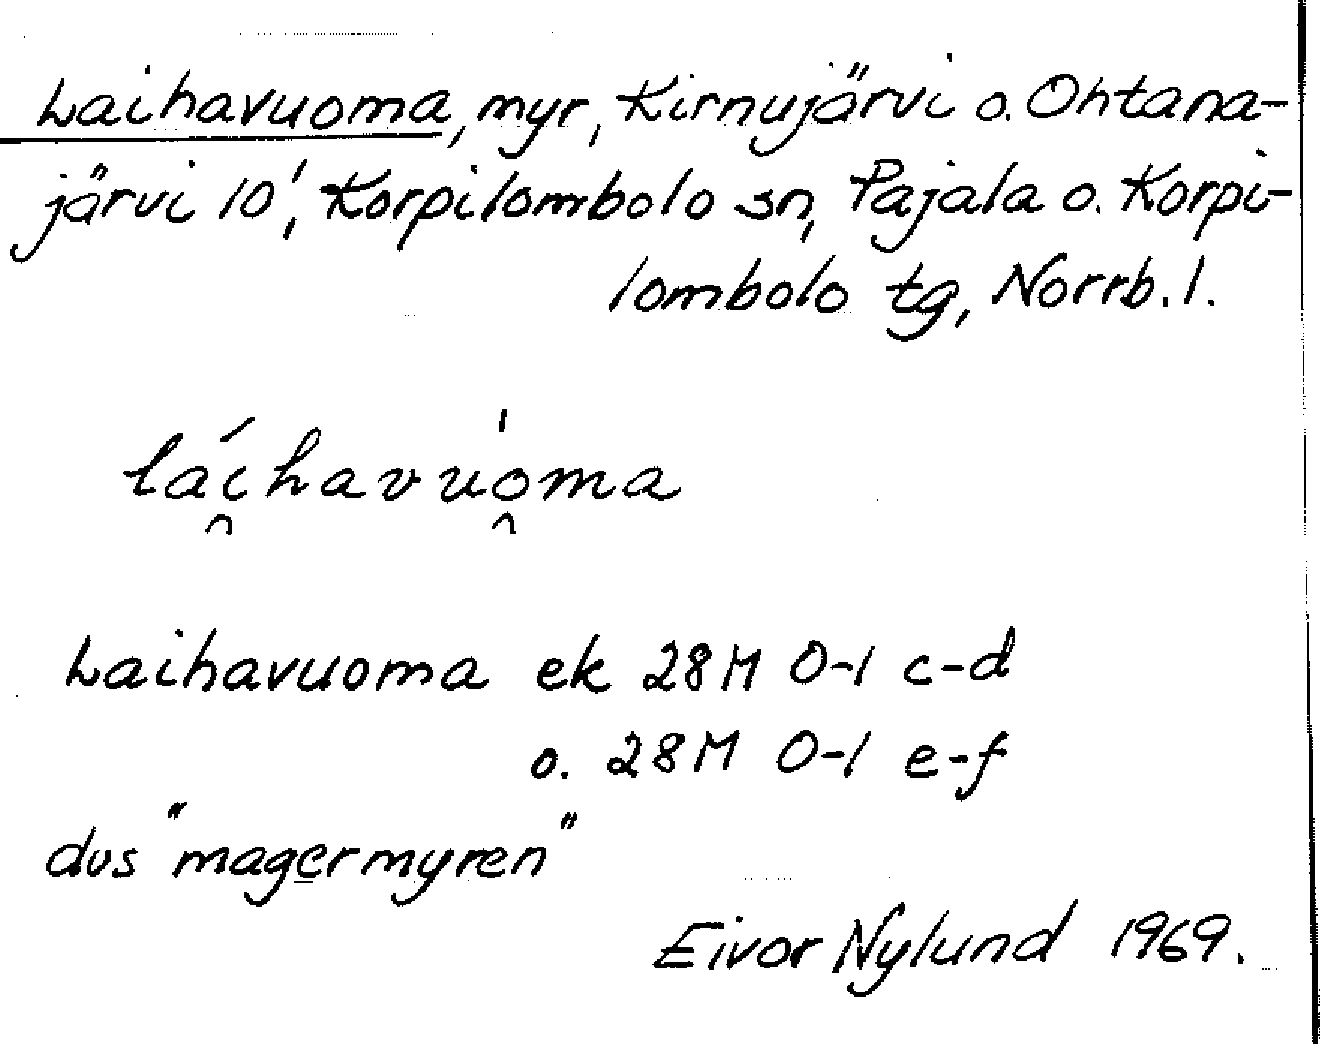 Laihavuoma, myr, Kirnujärvi o. Ohtana-
järvi 10', Korpilombolo sn, Pajala o. Korpi-
lombolo tg, Norrb. l.
lái̯havu̯òma
Laihavuoma ek 28M 0-1 c-d
o. 28M 0-1 e-f
dvs "magermyren"
Eivor Nylund 1969.